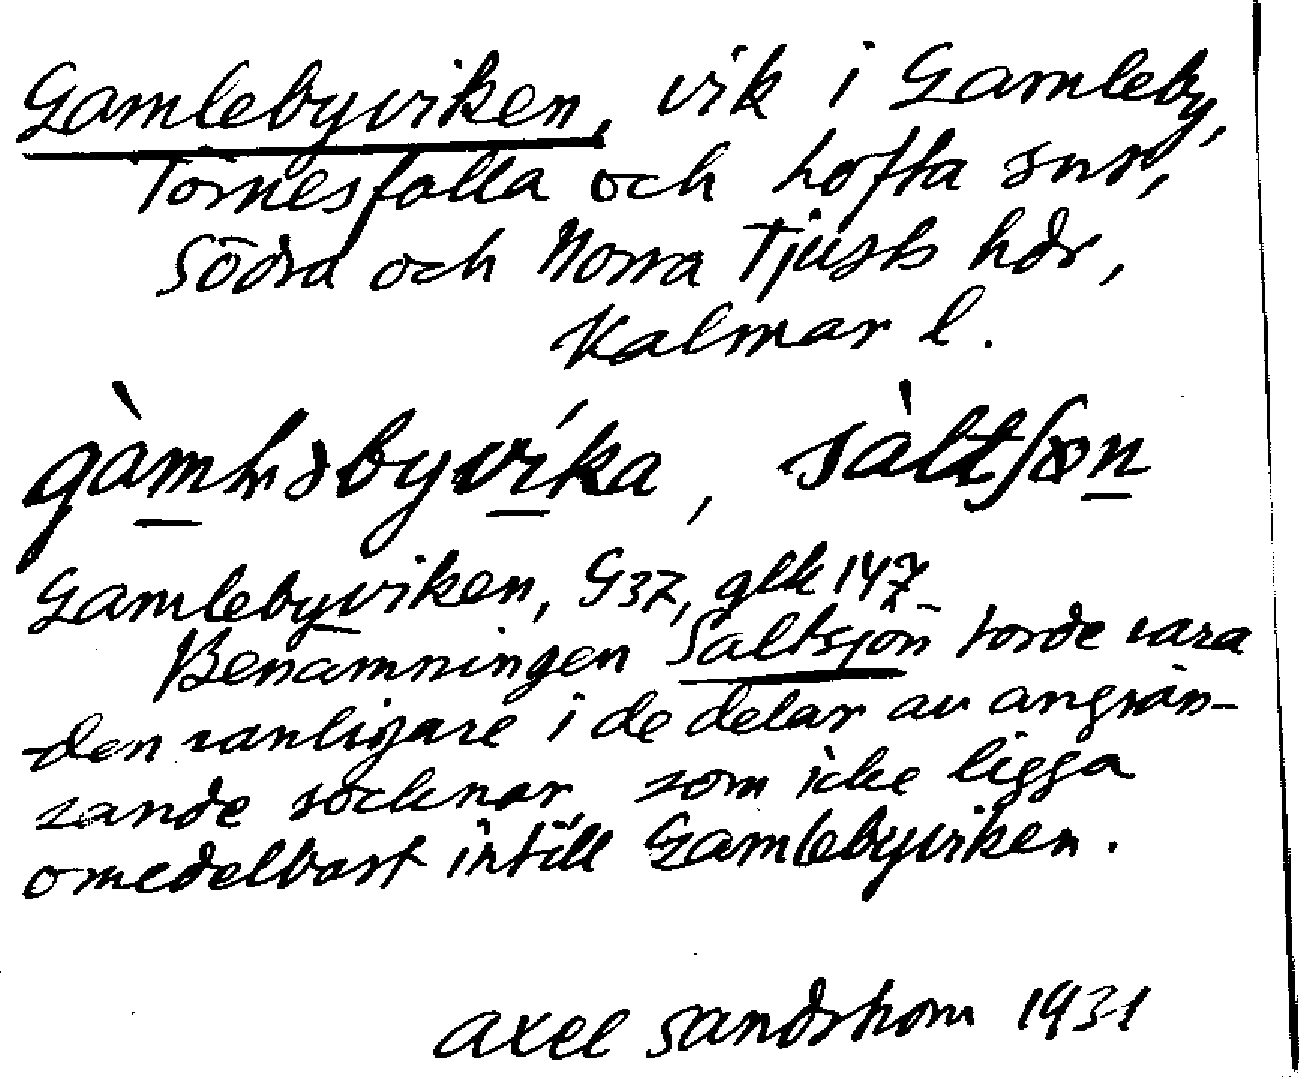 Gamlebyviken, vik i Gamleby,
Törnesfalla och Lofta snr,
Södra och Norra Tjusts hdr,
Kalmar l.
sàltʃøn
Gamlebyviken, G37, glk 147
Benämningen Saltsjön torde vara
den vanligare i de delar av angrän-
sande socknar, som icke ligga
omedelbart intill Gamlebyviken.
Axel Sandstrom 1931